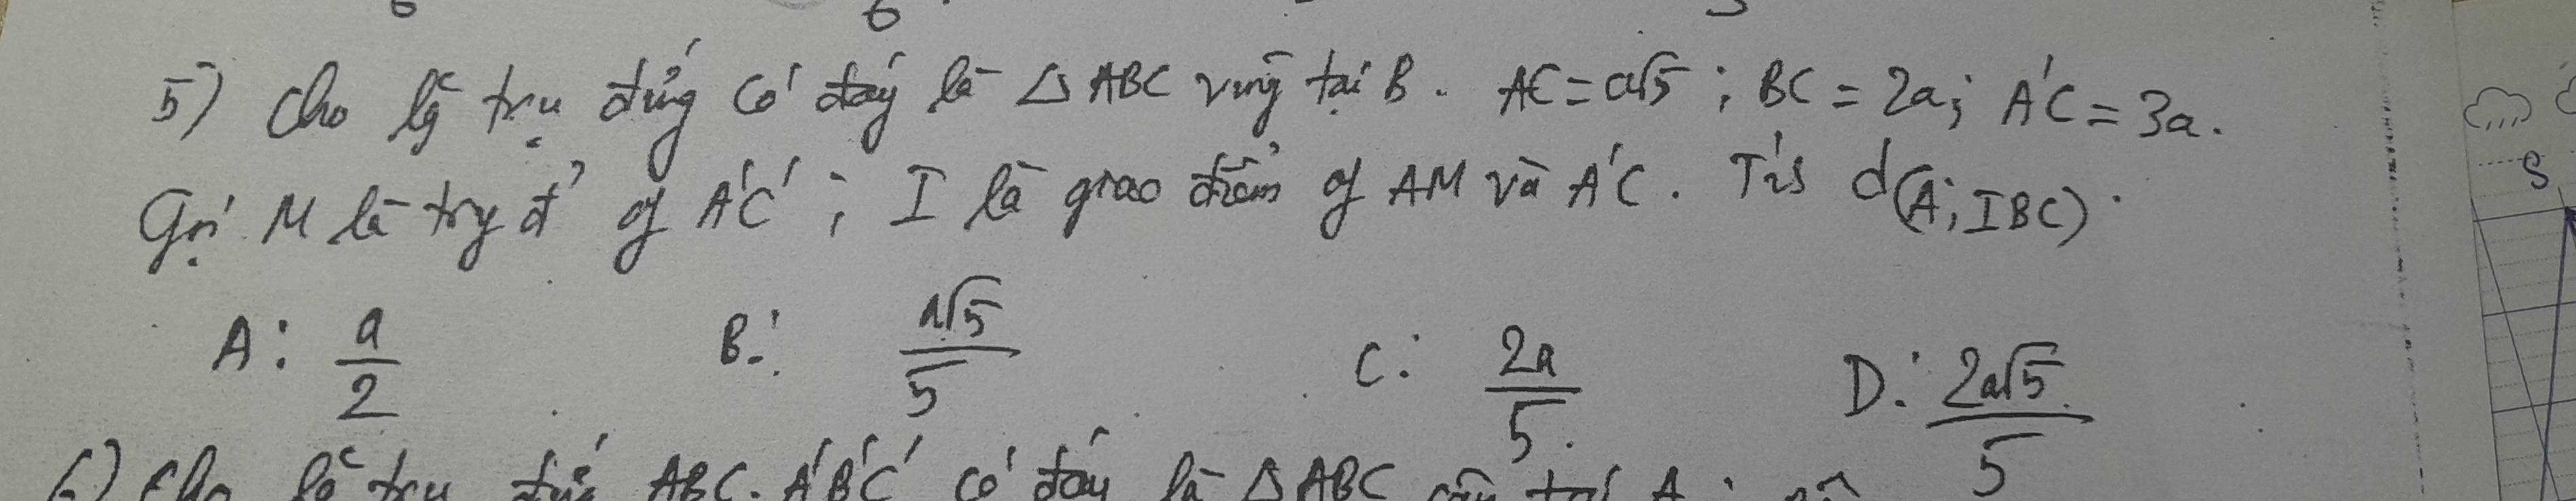 5) Cho lg trụ đứng có đáy là △ABC vug tại B. AC = a√5 ; BC = 2a; A'C = 3a.
Gọi M là trg đ' of A'C' ; I là giao điểm of AM và A'C. Tính d(A; IBC).
A: a/2 B: a√5/5 C: 2a/5 D: 2a√5/5
6) Cho lg trụ đứg ABC.A'B'C' có đáy là △ABC